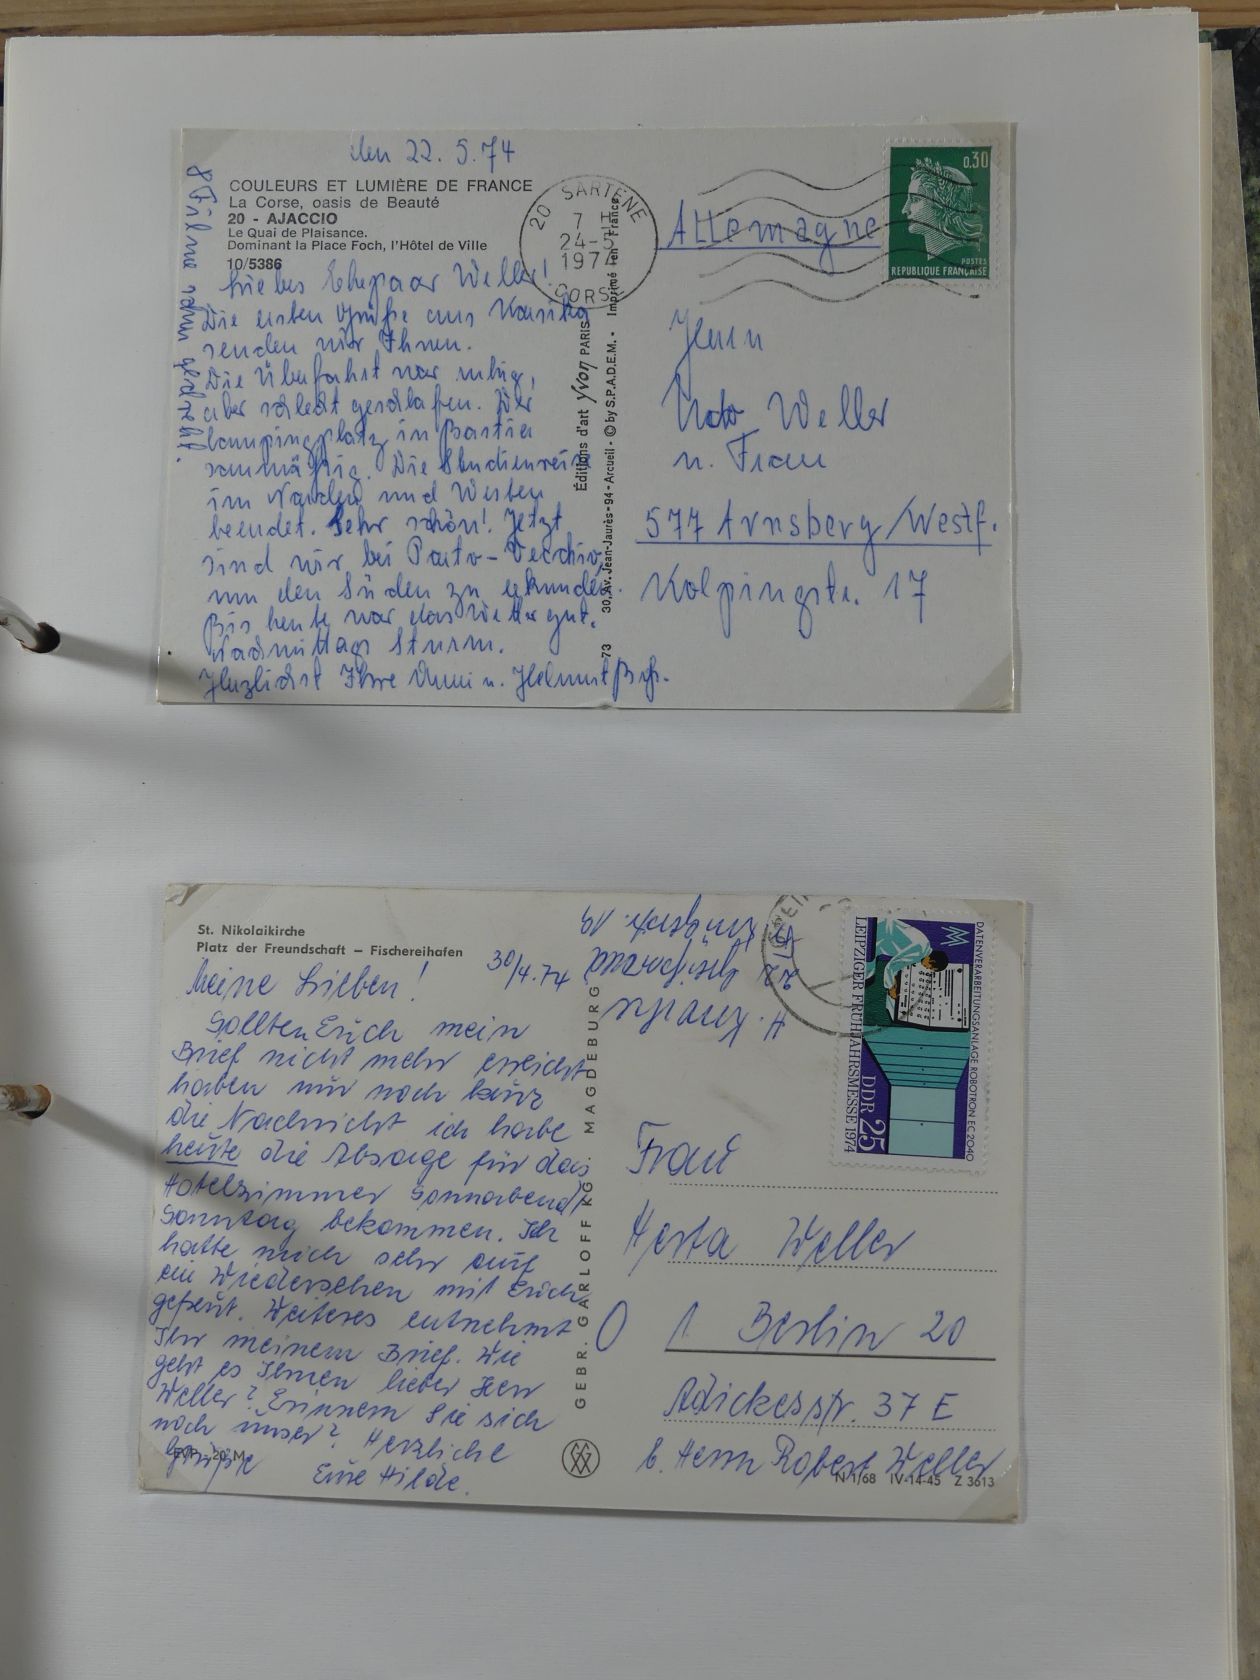 den 22.5.74
COULEURS ET LUMIÈRE DE FRANCE
La Corse, oasis de Beauté
20 - AJACCIO
Le Quai de Plaisance.
Dominant la Place Foch, l'Hôtel de Ville
10/5386
Liebes Ehepaar Weller!
Die ersten Grüße aus Korsika
senden wir Ihnen.
Die Überfahrt war ruhig,
aber schlecht geschlafen. Der
Campingplatz in Bastia
saumäßig. Die Studienreise
im Norden und Westen
beendet. Sehr schön! Jetzt
sind wir bei Porto-Vecchio,
um den Süden zu erkunden.
Bis heute war das Wetter gut.
Nachmittags Sturm.
Herzlichst Ihre u. Helmut
8 Filme schon gedreht.
20 SARTÈNE
7 H
24-5
1974
CORSE
Éditions d'art Yvon PARIS
30, Av. Jean-Jaurès - 94 - Arcueil - © by S.P.A.D.E.M. • Imprimé en France
73
0,30
POSTES
REPUBLIQUE FRANÇAISE
Allemagne
Herrn
Udo Weller
u. Frau
577 Arnsberg/Westf.
Kolpingstr. 17
St. Nikolaikirche
Platz der Freundschaft – Fischereihafen
30/4.74
Meine Lieben!
Sollten Euch mein
Brief nicht mehr erreicht
haben nur noch kurz
die Nachricht ich habe
heute die Absage für das
Hotelzimmer Sonnabend/
Sonntag bekommen. Ich
hatte mich sehr auf
ein Wiedersehen mit Euch
gefreut. Weiteres entnehmt
Ihr meinem Brief. Wie
geht es Ihnen lieber Herr
Weller? Erinnern Sie sich
noch unser? Herzliche
Grüße Eure Hilde.
EVP -,20 M
GEBR. GARLOFF KG. MAGDEBURG
H.
DATENVERARBEITUNGSANLAGE ROBOTRON EC2040
LEIPZIGER FRÜHJAHRSMESSE 1974
DDR 25
Frau
Herta Weller
1 Berlin 20
Adickesstr. 37 E
b. Herrn Robert Weller
N 1/68 IV-14-45 Z 3613